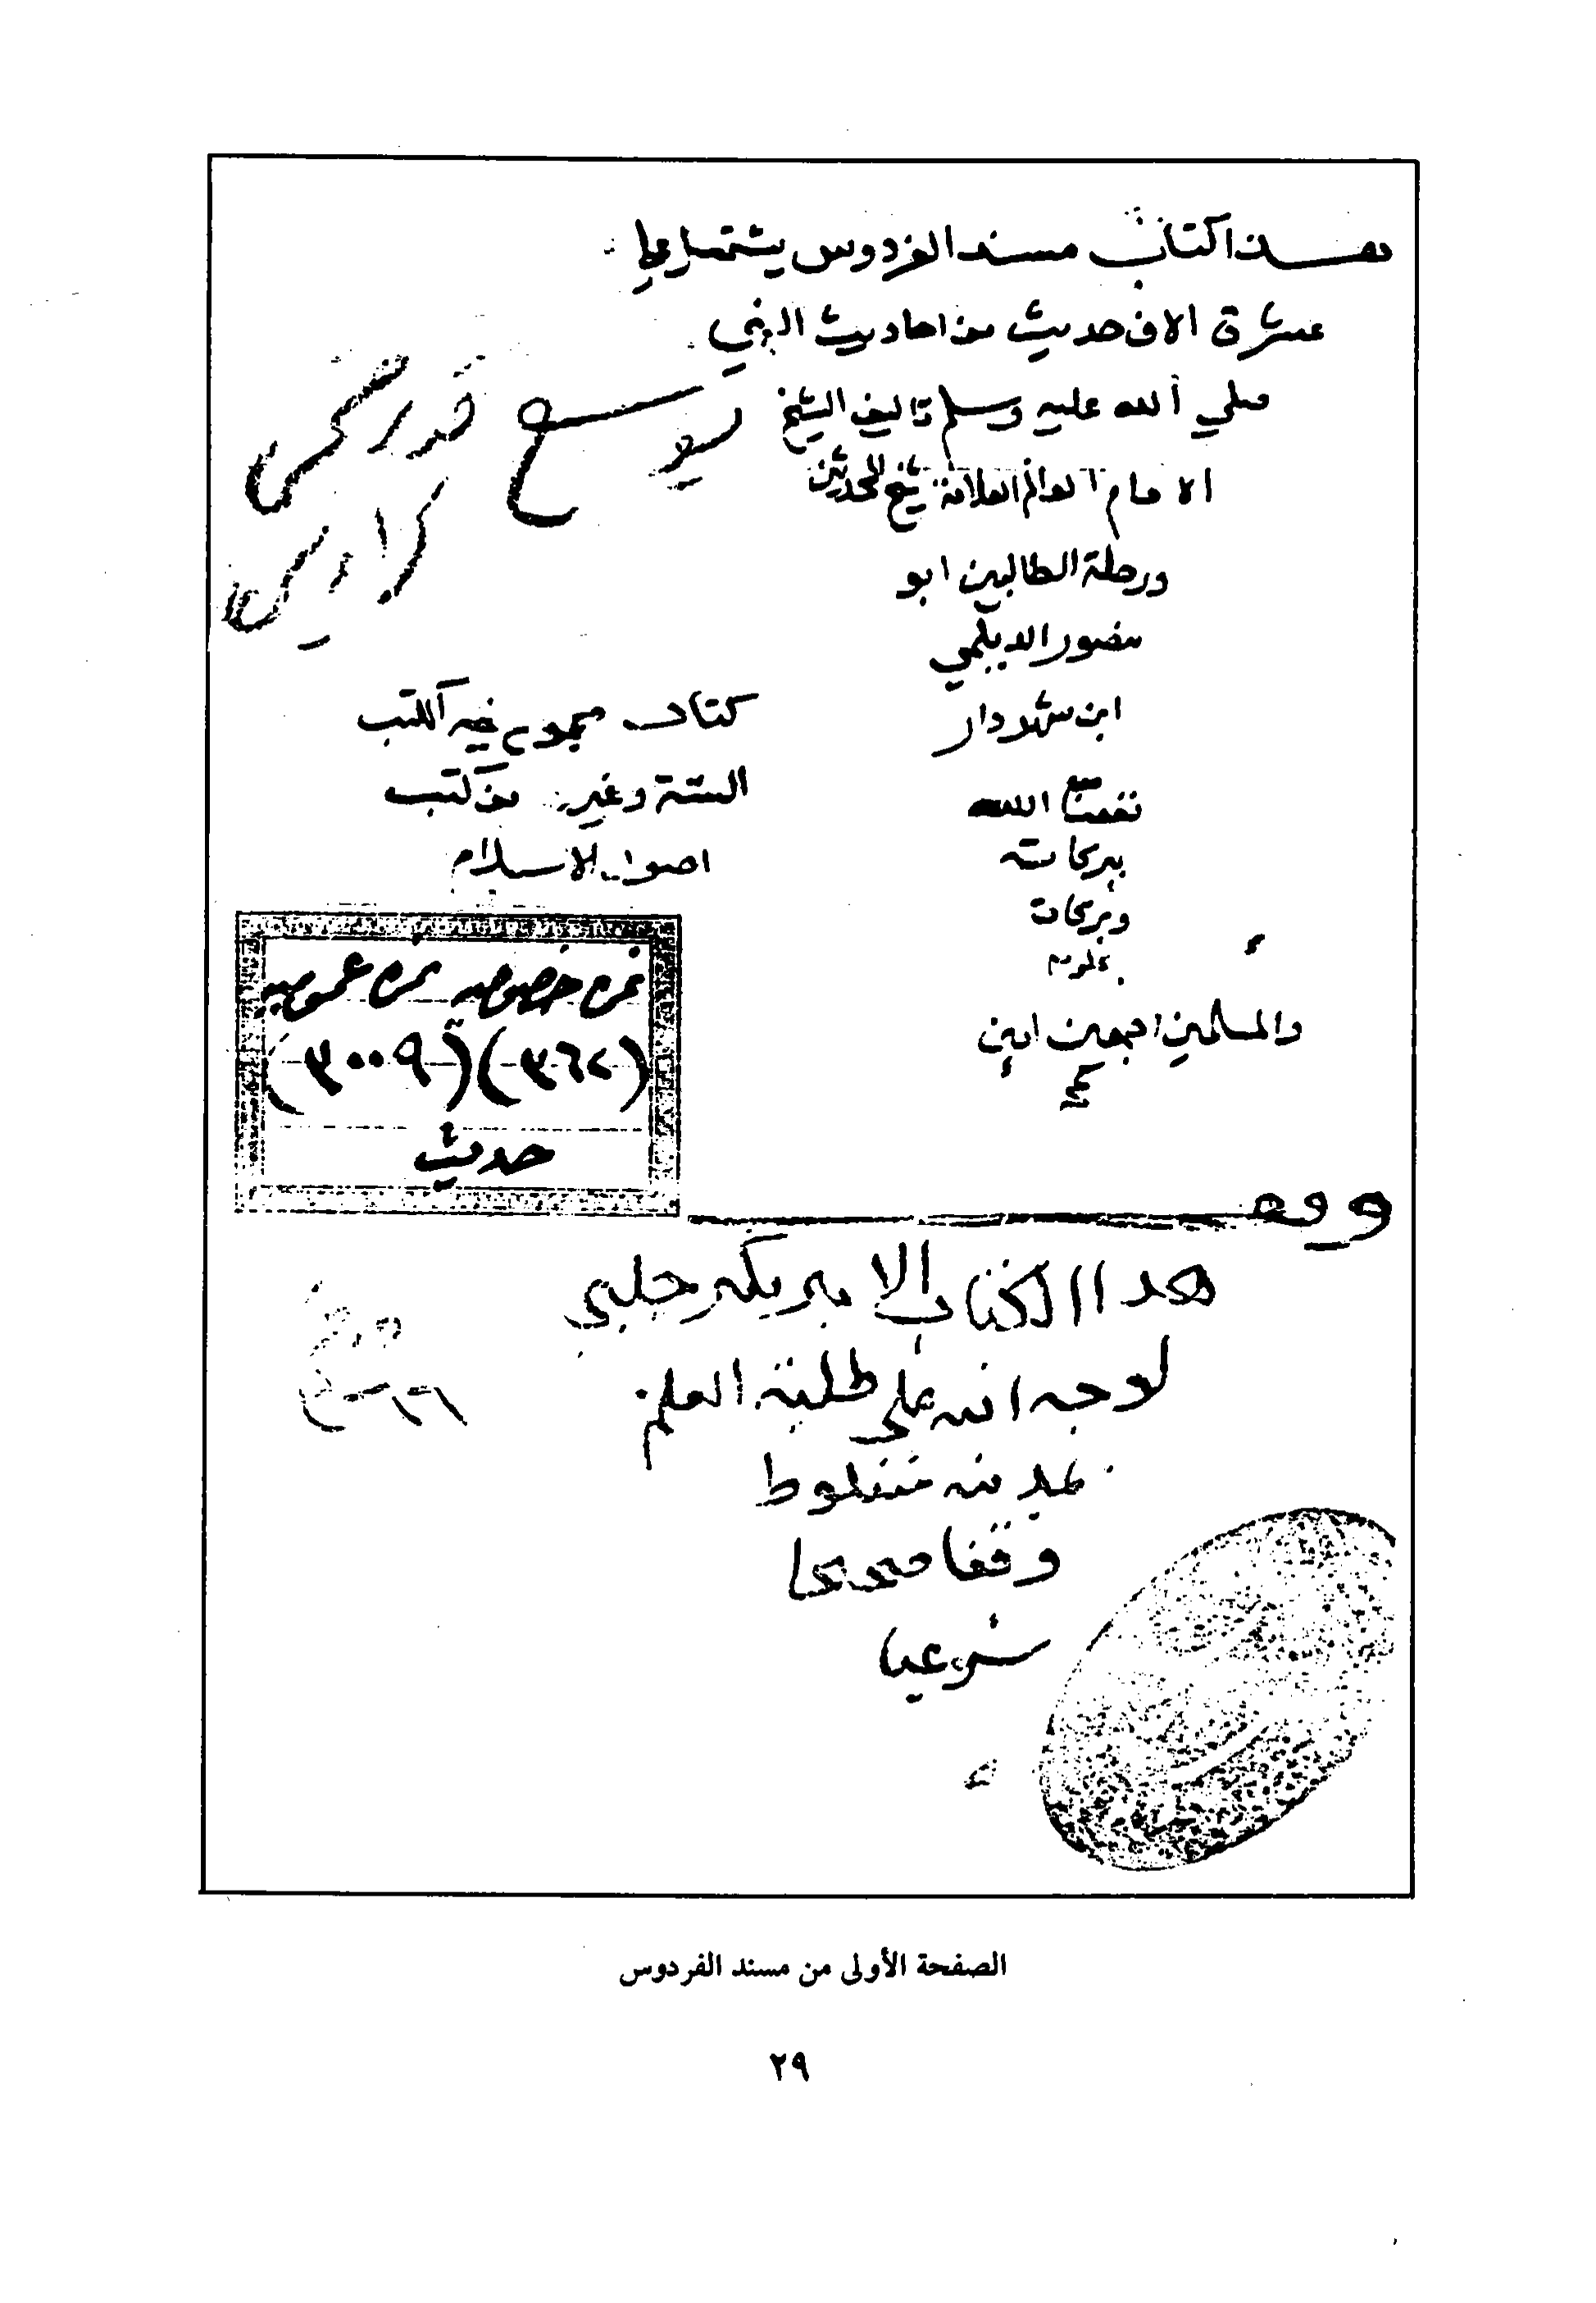 هذا كتاب مسند الفردوس يشتمل على
عشرة الاف حديث من احاديث النبي
صلي الله عليه وسلم تاليف الشيخ
الامام العالم العلامة شيخ المحدثين
ورحلة الطالبين ابو
منصور الديلمي
ابن شهردار
نفعنا الله
ببركاته
وبركات
علومه
والمسلمين اجمعين امين
كراريس
كتاب مجموع فيه الكتب
الستة وغير من كتب
اصول الاسلام
نمره خصوصيه نمره عموميه
(٣٦٧) (٣٠٠٩)
حديث
ووقف
هدا الكتاب الامير حلبي
لوجه الله على طلبة العلم
بمدينه منفلوط
وقفا صحيحا
شرعيا
الصفحة الأولى من مسند الفردوس
٢٩